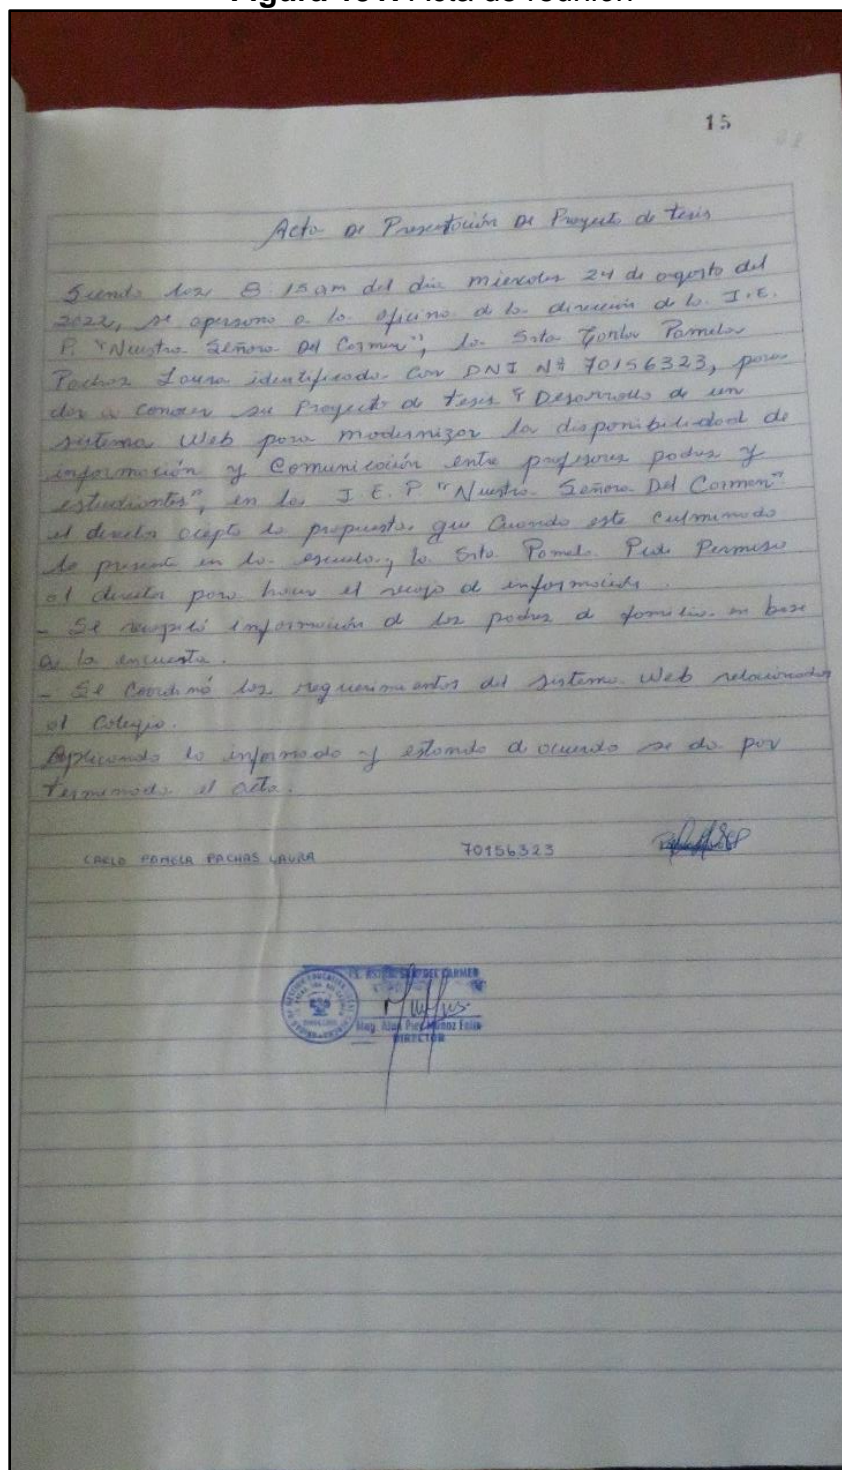 Acta de reunión
15
Acta De Presentación De Proyecto de tesis
Siendo las 8:15 am del día miercoles 24 de agosto del
2022, se apersono a la oficina de la dirección de la I.E.
P. "Nuestra Señora Del Carmen", la Srta Pamela
Pachas Laura identificada con DNI N° 70156323, para
dar a conocer su Proyecto de tesis "Desarrollo de un
sistema Web para modernizar la disponibilidad de
información y Comunicación entre profesores padres y
estudiantes", en la I.E.P "Nuestra Señora Del Carmen"
el director acepto la propuesta, que Cuando este culminado
lo presente en la escuela, la Srta. Pamela Pide Permiso
al director para hacer el recojo de información.
- Se recopiló información de los padres de familia en base
a la encuesta.
- Se Coordinó los requerimientos del sistema Web relacionados
al Colegio.
lo informado y estando de acuerdo se da por
terminada el acta.
PAMELA PACHAS LAURA 70156323
DIRECTOR